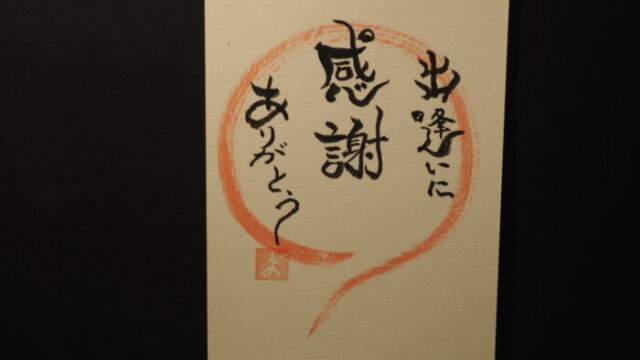 出逢いに
感謝
ありがとう
よ